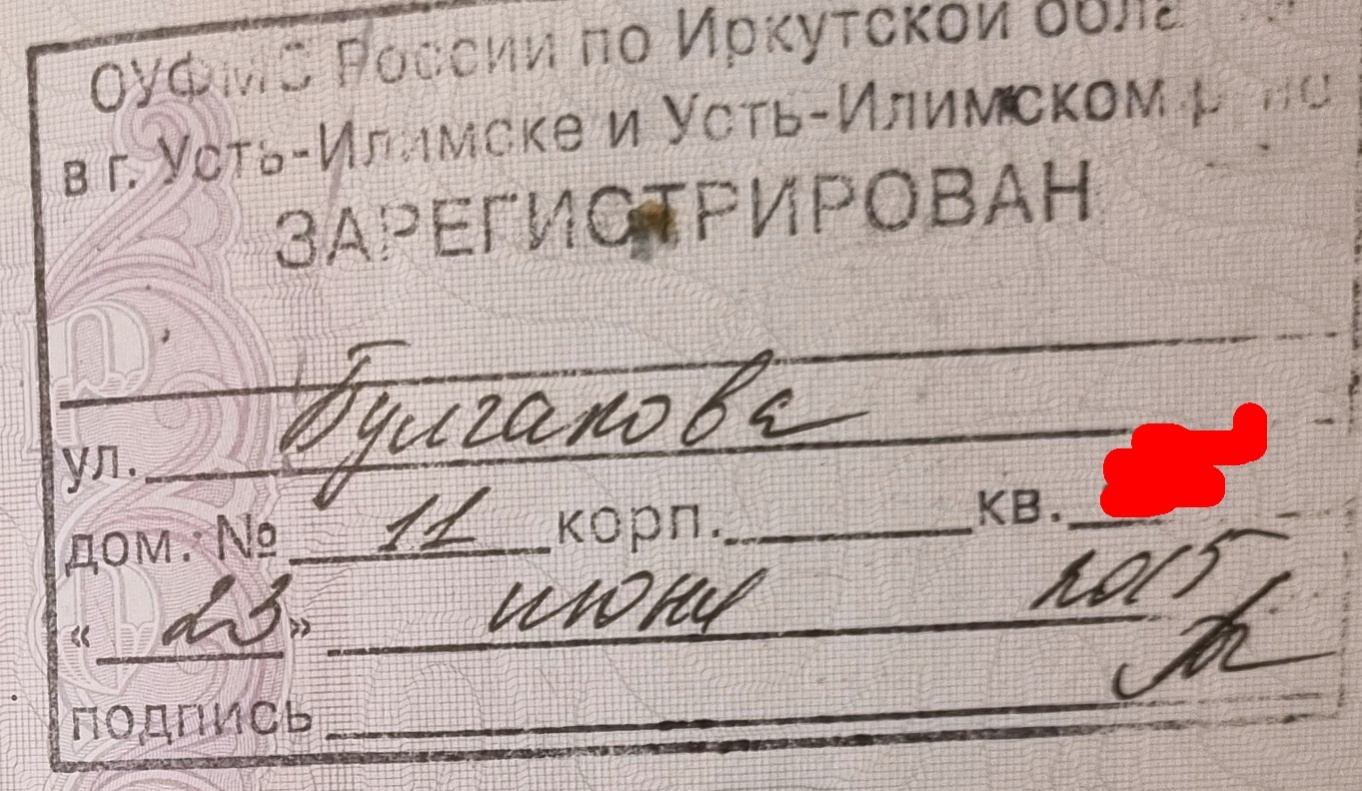 ОУФМС России по Иркутской обла
в г. Усть-Илимске и Усть-Илимском
ЗАРЕГИСТРИРОВАН
ул. Булгакова
дом. № 11 корп. кв.
« 23 » июня 2015
подпись